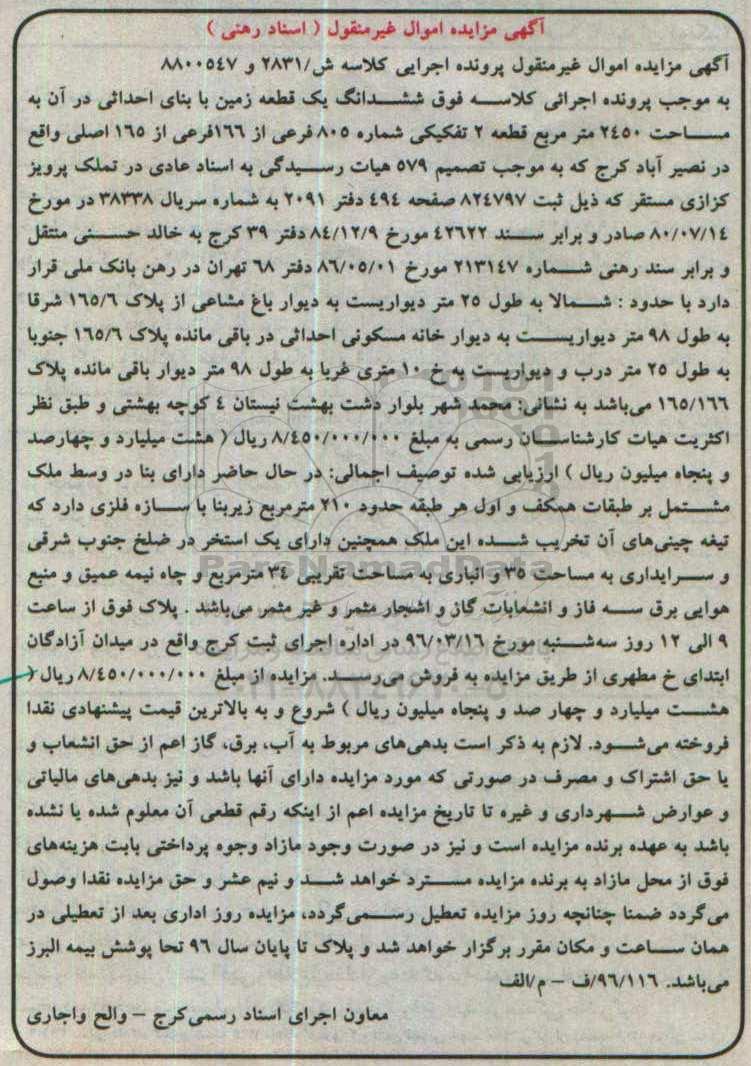 آگهی مزایده اموال غیرمنقول ( اسناد رهنی )
آگهی مزایده اموال غیرمنقول پرونده اجرایی کلاسه ش/۲۸۳۱ و ۸۸۰۰۵٤۷
به موجب پرونده اجرائی کلاسه فوق ششدانگ یک قطعه زمین با بنای احداثی در آن به
مساحت ۲٤۵۰ متر مربع قطعه ۲ تفکیکی شماره ۸۰۵ فرعی از ۱٦٦فرعی از ۱٦۵ اصلی واقع
در نصیر آباد کرج که به موجب تصمیم ۵۷۹ هیات رسیدگی به اسناد عادی در تملک پرویز
کزازی مستقر که ذیل ثبت ۸۲٤۷۹۷ صفحه ٤۹٤ دفتر ۲۰۹۱ به شماره سریال ۳۸۳۳۸ در مورخ
۸۰/۰۷/۱٤ صادر و برابر سند ٤۲٦۲۲ مورخ ۸٤/۱۲/۹ دفتر ۳۹ کرج به خالد حسنی منتقل
و برابر سند رهنی شماره ۲۱۳۱٤۷ مورخ ۸٦/۰۵/۰۱ دفتر ٦۸ تهران در رهن بانک ملی قرار
دارد با حدود : شمالا به طول ۲۵ متر دیواریست به دیوار باغ مشاعی از پلاک ۱٦۵/٦ شرقا
به طول ۹۸ متر دیواریست به دیوار خانه مسکونی احداثی در باقی مانده پلاک ۱٦۵/٦ جنوبا
به طول ۲۵ متر درب و دیواریست به خ ۱۰ متری غربا به طول ۹۸ متر دیوار باقی مانده پلاک
۱٦۵/۱٦٦ می‌باشد به نشانی: محمد شهر بلوار دشت بهشت نیستان ٤ کوچه بهشتی و طبق نظر
اکثریت هیات کارشناسان رسمی به مبلغ ۸/٤۵۰/۰۰۰/۰۰۰ ریال ( هشت میلیارد و چهارصد
و پنجاه میلیون ریال ) ارزیابی شده توصیف اجمالی: در حال حاضر دارای بنا در وسط ملک
مشتمل بر طبقات همکف و اول هر طبقه حدود ۲۱۰ مترمربع زیربنا با سازه فلزی دارد که
تیغه چینی‌های آن تخریب شده این ملک همچنین دارای یک استخر در ضلع جنوب شرقی
و سرایداری به مساحت ۳۵ و انباری به مساحت تقریبی ۳٤ مترمربع و چاه نیمه عمیق و منبع
هوایی برق سه فاز و انشعابات گاز و اشجار مثمر و غیر مثمر می‌باشد . پلاک فوق از ساعت
۹ الی ۱۲ روز سه‌شنبه مورخ ۹٦/۰۳/۱٦ در اداره اجرای ثبت کرج واقع در میدان آزادگان
ابتدای خ مطهری از طریق مزایده به فروش می‌رسد. مزایده از مبلغ ۸/٤۵۰/۰۰۰/۰۰۰ ریال (
هشت میلیارد و چهار صد و پنجاه میلیون ریال ) شروع و به بالاترین قیمت پیشنهادی نقدا
فروخته می‌شود. لازم به ذکر است بدهی‌های مربوط به آب، برق، گاز اعم از حق انشعاب و
یا حق اشتراک و مصرف در صورتی که مورد مزایده دارای آنها باشد و نیز بدهی‌های مالیاتی
و عوارض شهرداری و غیره تا تاریخ مزایده اعم از اینکه رقم قطعی آن معلوم شده یا نشده
باشد به عهده برنده مزایده است و نیز در صورت وجود مازاد وجوه پرداختی بابت هزینه‌های
فوق از محل مازاد به برنده مزایده مسترد خواهد شد و نیم عشر و حق مزایده نقدا وصول
می‌گردد ضمنا چنانچه روز مزایده تعطیل رسمی‌گردد، مزایده روز اداری بعد از تعطیلی در
همان ساعت و مکان مقرر برگزار خواهد شد و پلاک تا پایان سال ۹٦ تحا پوشش بیمه البرز
می‌باشد. ۹٦/۱۱٦/ف - م/الف
معاون اجرای اسناد رسمی‌کرج - والح واجاری
ParsNamadData